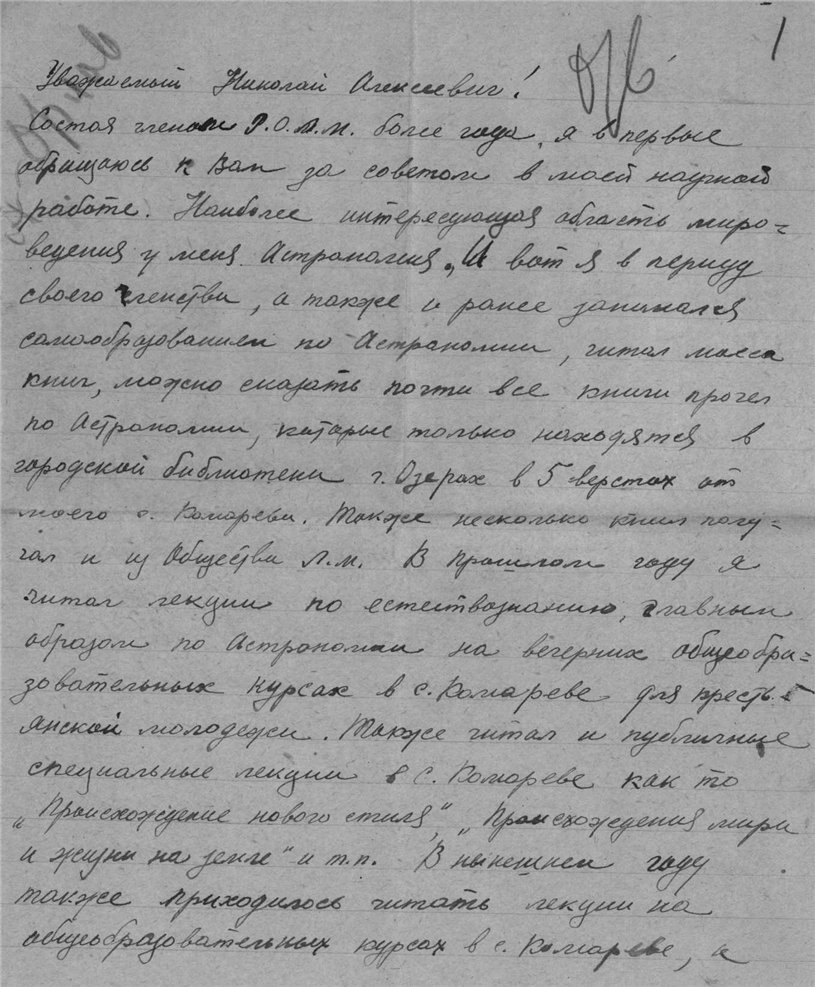 Уважаемый Николай Алексеевич!
Состоя членом Р.О.Л.М. более года, я в первые
обращаюсь к Вам за советом в моей научной
работе. Наиболее интересующая область миро=
ведения у меня Астрономия. И вот я в период
своего членства, а также и ранее занимался
самообразованием по Астрономии, читал масса
книг, можно сказать почти все книги прочел
по Астрономии, которые только находятся в
городской библиотеки г. Озерах в 5 верстах от
моего с. Комарева. Также несколько книг полу=
чал и из Общества Л.М. В прошлом году я
читал лекции по естествознанию, главным
образом по Астрономии на вечерних общеобра=
зовательных курсах в с. Комареве для кресть=
янской молодежи. Также читал и публичные
специальные лекции в с. Комареве как то
„Происхождение нового стиля“, „Происхождения мира
и жизни на земле“ и т.п. В нынешнем году
также приходилось читать лекции на
общеобразовательных курсах в с. Комареве, а